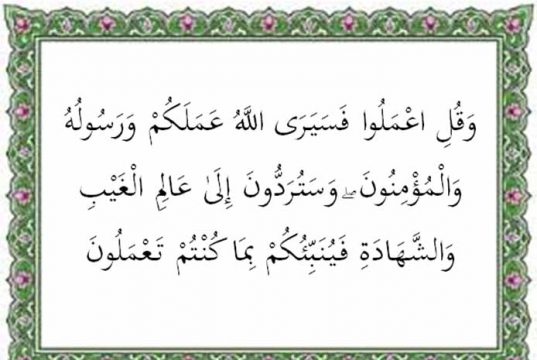 وَقُلِ اعْمَلُوا فَسَيَرَى اللَّهُ عَمَلَكُمْ وَرَسُولُهُ
وَالْمُؤْمِنُونَ ۖ وَسَتُرَدُّونَ إِلَىٰ عَالِمِ الْغَيْبِ
وَالشَّهَادَةِ فَيُنَبِّئُكُمْ بِمَا كُنْتُمْ تَعْمَلُونَ